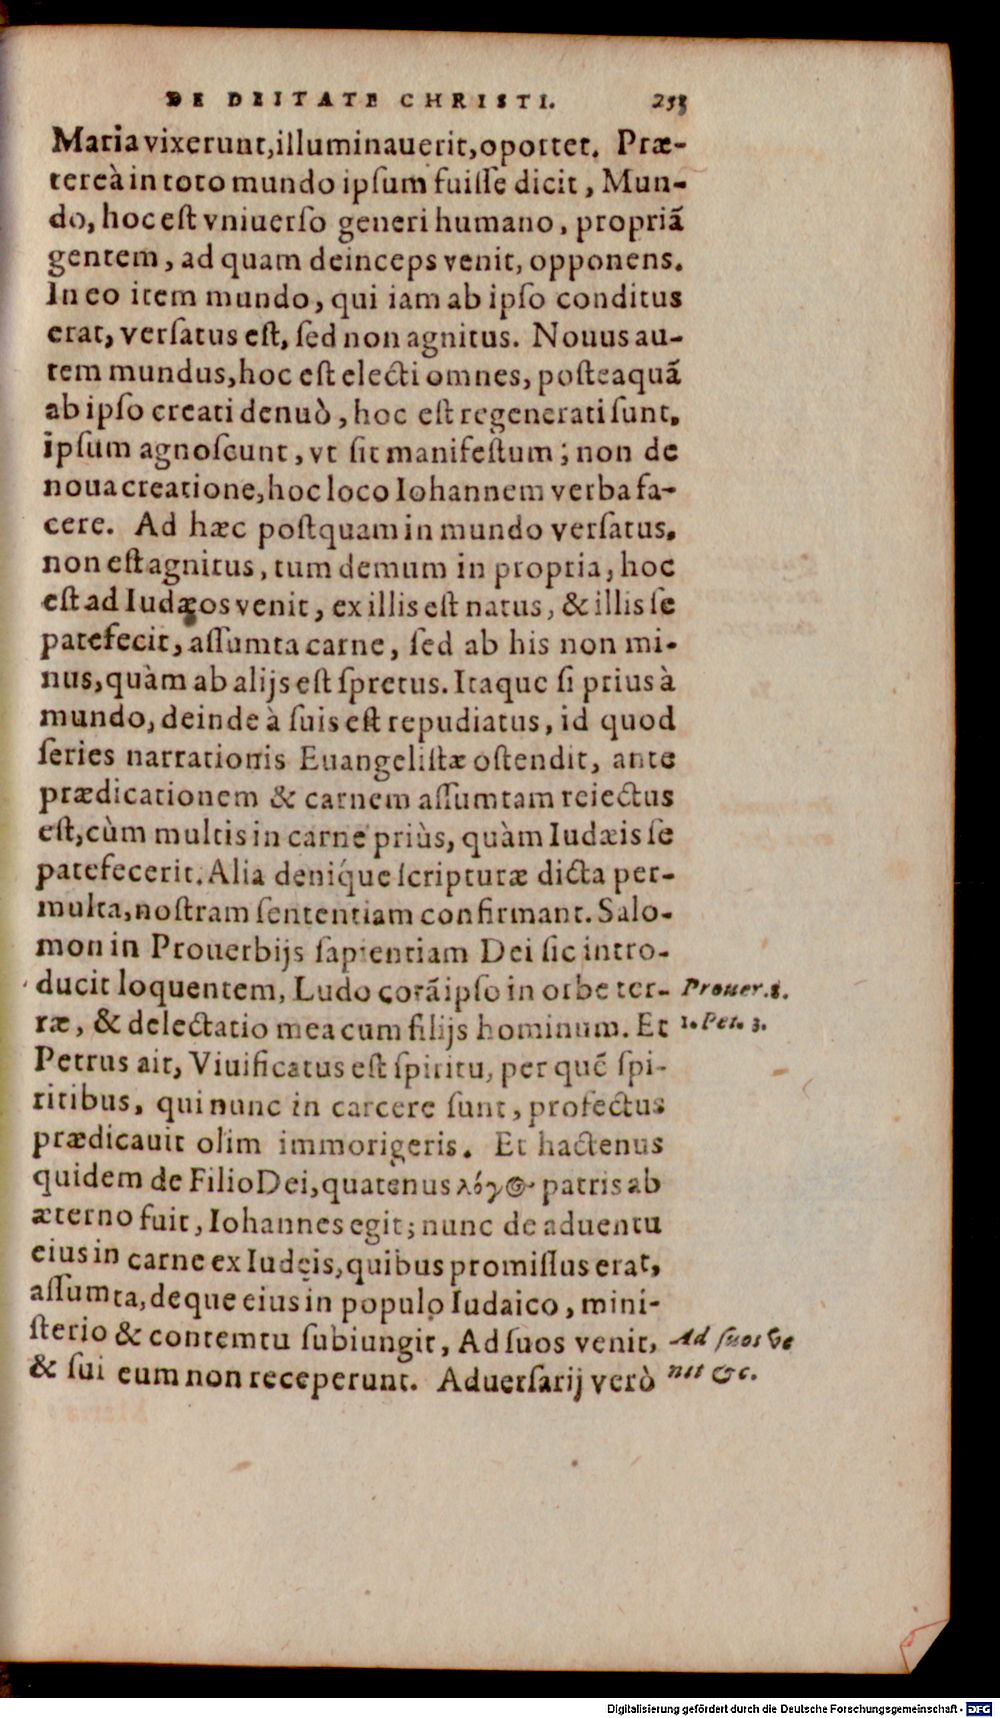 DE DEITATE CHRISTI. 233
Maria vixerunt, illuminauerit, oportet. Præ-
tereà in toto mundo ipſum fuiſſe dicit, Mun-
do, hoc eſt vniuerſo generi humano, propriã
gentem, ad quam deinceps venit, opponens.
In eo item mundo, qui iam ab ipſo conditus
erat, verſatus eſt, ſed non agnitus. Nouus au-
tem mundus, hoc eſt electi omnes, poſteaquã
ab ipſo creati denuò, hoc eſt regenerati ſunt,
ipſum agnoſcunt, vt ſit manifeſtum; non de
noua creatione, hoc loco Iohannem verba fa-
cere. Ad hæc poſtquam in mundo verſatus,
non eſt agnitus, tum demum in propria, hoc
eſt ad Iudæos venit, ex illis eſt natus, & illis ſe
patefecit, aſſumta carne, ſed ab his non mi-
nus, quàm ab alijs eſt ſpretus. Itaque ſi prius à
mundo, deinde à ſuis eſt repudiatus, id quod
ſeries narrationis Euangeliſtæ oſtendit, ante
prædicationem & carnem aſſumtam reiectus
eſt, cùm multis in carne priùs, quàm Iudæis ſe
patefecerit. Alia deniq́ue ſcripturæ dicta per-
multa, noſtram ſententiam confirmant. Salo-
mon in Prouerbijs ſapientiam Dei ſic intro-
ducit loquentem, Ludo corã ipſo in orbe ter- Prouer. 8.
ræ, & delectatio mea cum filijs hominum. Et 1. Pet. 3.
Petrus ait, Viuificatus eſt ſpiritu, per quẽ ſpi-
ritibus, qui nunc in carcere ſunt, profectus
prædicauit olim immorigeris. Et hactenus
quidem de Filio Dei, quatenus λόγος patris ab
æterno fuit, Iohannes egit; nunc de aduentu
eius in carne ex Iudęis, quibus promiſſus erat,
aſſumta, deque eius in populo Iudaico, mini-
ſterio & contemtu ſubiungit, Ad ſuos venit, Ad ſuos ve
& ſui eum non receperunt. Aduerſarij verò nit &c.
Digitalisierung gefördert durch die Deutsche Forschungsgemeinschaft - DFG